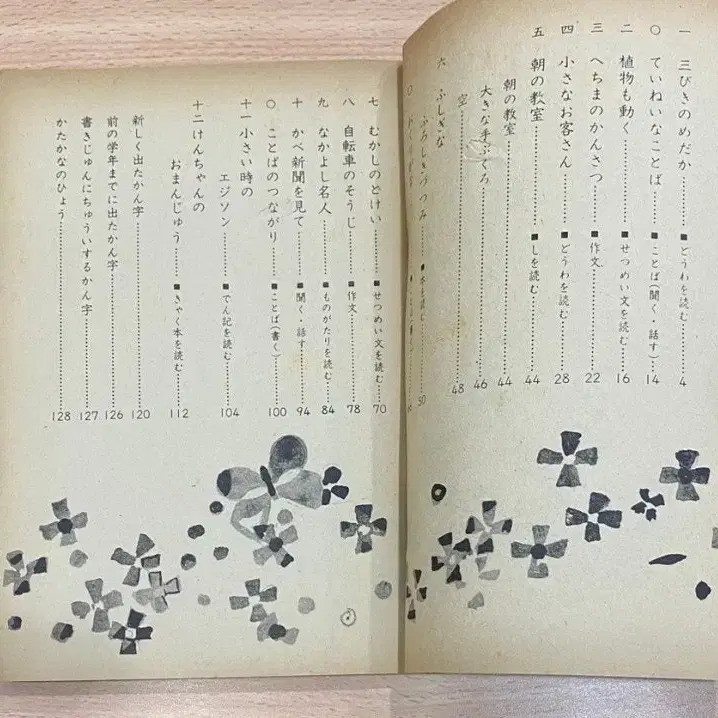 一 三びきのめだか……■どうわを読む……4
○ ていねいなことば……■ことば(聞く・話す)……14
二 植物も動く……■せつめい文を読む……16
三 へちまのかんさつ……■作文……22
四 小さなお客さん……■どうわを読む……28
五 朝の教室……■しを読む……44
朝の教室……44
大きな手ぶくろ……46
空……48
六 ふしぎな
ふろしきづつみ……読む……50
七 むかしのとけい……■せつめい文を読む……70
八 自転車のそうじ……■作文……78
九 なかよし名人……■ものがたりを読む……84
十 かべ新聞を見て……■聞く・話す……94
○ ことばのつながり……■ことば(書く)……100
十一 小さい時の
エジソン……■でん記を読む……104
十二 けんちゃんの
おまんじゅう……■きゃく本を読む……112
新しく出たかん字……120
前の学年までに出たかん字……126
書きじゅんにちゅういするかん字……127
かたかなのひょう……128